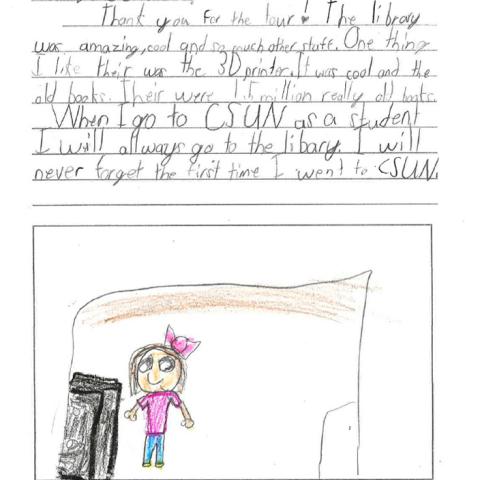 Thank you for the tour! The library
was amazing, cool and so much other stuff. One thing
I like their was the 3D printer. It was cool and the
old books. Their were 1.5 million really old books.
When I go to CSUN as a student
I will allways go to the libary. I will
never forget the first time I went to CSUN.